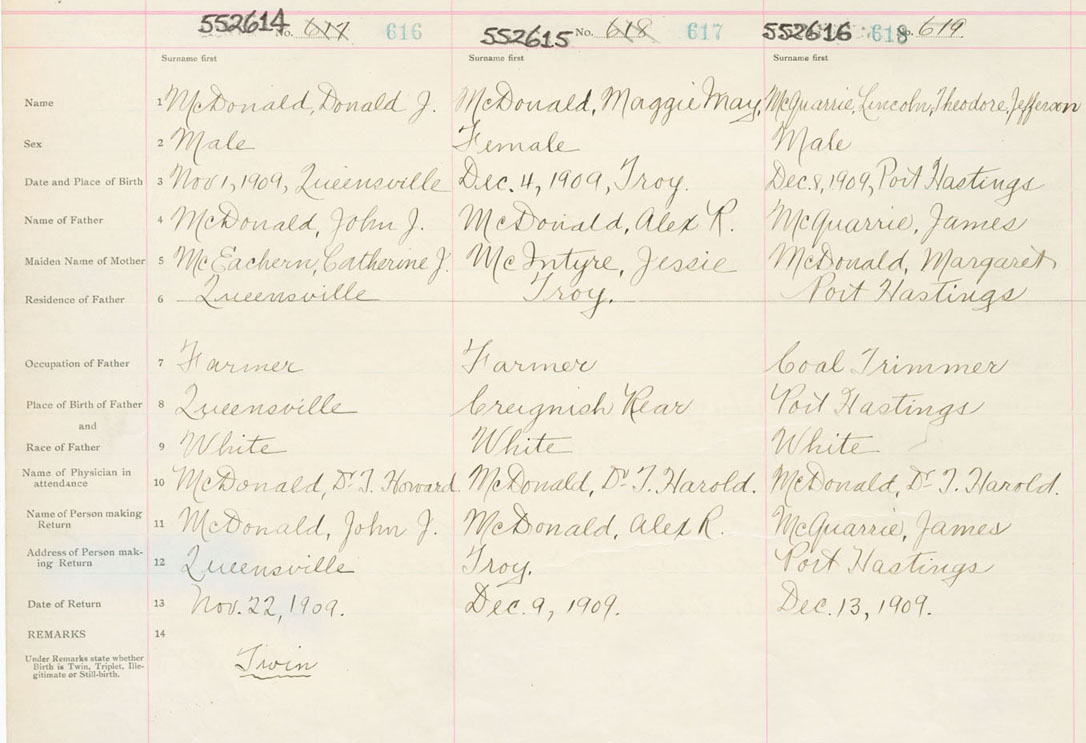 552614 No. 617 616 552615 No. 618 617 552616 618 No. 619
Surname first Surname first Surname first
Name 1 McDonald, Donald J. McDonald, Maggie May, McQuarrie, Lincoln, Theodore, Jefferson
Sex 2 Male Female Male
Date and Place of Birth 3 Nov 1, 1909, Queensville Dec. 4, 1909, Troy. Dec. 8, 1909, Port Hastings
Name of Father 4 McDonald, John J. McDonald, Alex R. McQuarrie, James
Maiden Name of Mother 5 McEachern, Catherine J. McIntyre, Jessie McDonald, Margaret
Residence of Father 6 Queensville Troy. Port Hastings
Occupation of Father 7 Farmer Farmer Coal Trimmer
Place of Birth of Father 8 Queensville Creignish Rear Port Hastings
and
Race of Father 9 White White White
Name of Physician in
attendance 10 McDonald, Dr. T. Howard McDonald, Dr. T. Harold. McDonald, Dr. T. Harold.
Name of Person making
Return 11 McDonald, John J. McDonald, Alex R. McQuarrie, James
Address of Person mak-
ing Return 12 Queensville Troy. Port Hastings
Date of Return 13 Nov. 22, 1909. Dec. 9, 1909. Dec. 13, 1909.
REMARKS 14
Under Remarks state whether
Birth is Twin, Triplet, Ille-
gitimate or Still-birth.
Twin